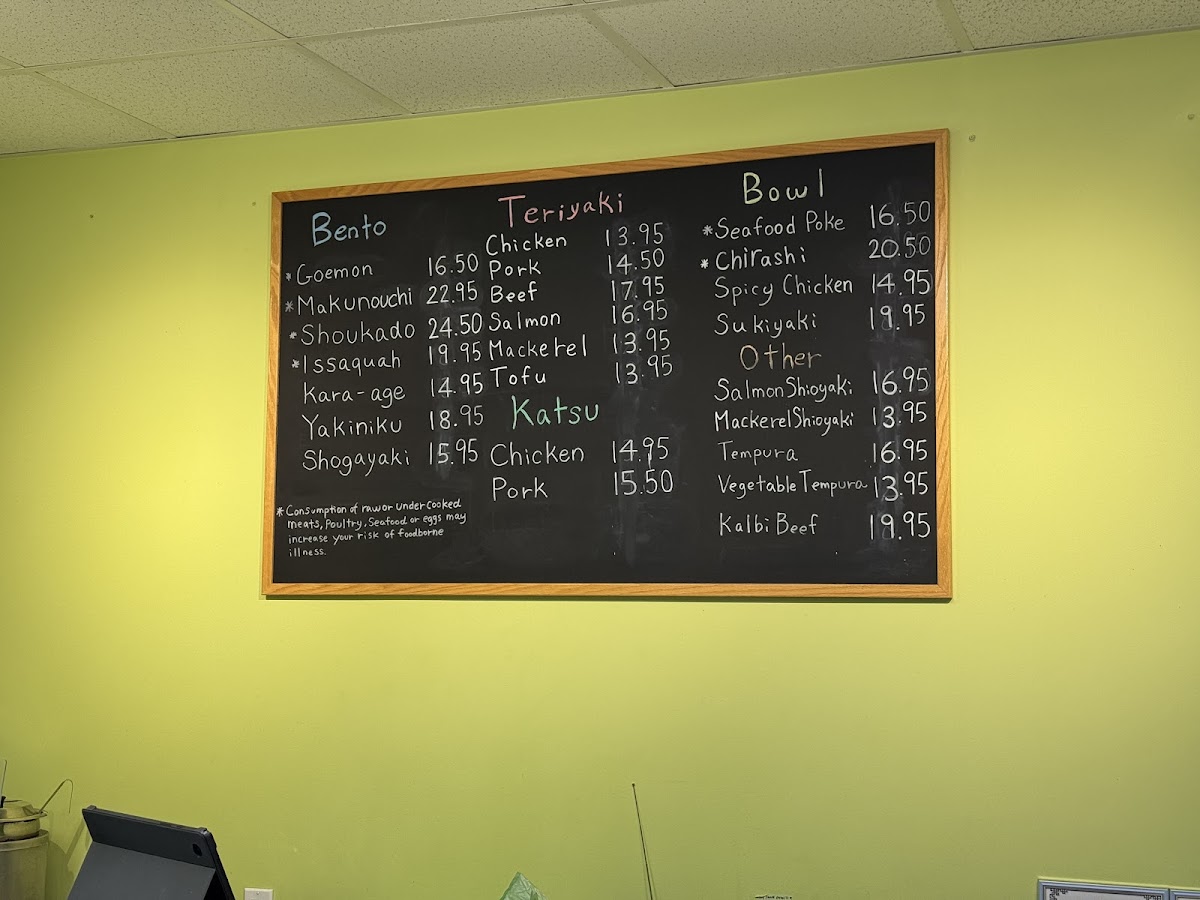 Bento
*Goemon 16.50
*Makunouchi 22.95
*Shoukado 24.50
*Issaquah 19.95
Kara-age 14.95
Yakiniku 18.95
Shogayaki 15.95
*Consumption of raw or under cooked
meats, Poultry, Seafood or eggs may
increase your risk of foodborne
illness.
Teriyaki
Chicken 13.95
Pork 14.50
Beef 17.95
Salmon 16.95
Mackerel 13.95
Tofu 13.95
Katsu
Chicken 14.95
Pork 15.50
Bowl
*Seafood Poke 16.50
*Chirashi 20.50
Spicy Chicken 14.95
Sukiyaki 19.95
Other
Salmon Shioyaki 16.95
Mackerel Shioyaki 13.95
Tempura 16.95
Vegetable Tempura 13.95
Kalbi Beef 19.95